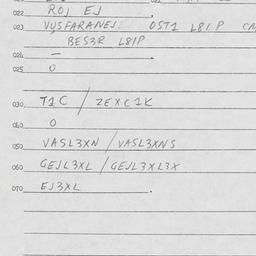 022 ROJ EJ
023 VUSFARANEJ OST1 L81P
BES3R L81P
024 —
025 0
030 T1C / ZEXC1K
040 0
050 VASL3XN / VASL3XNS
060 GEJL3XL / GEJL3XL3X
070 EJ3XL